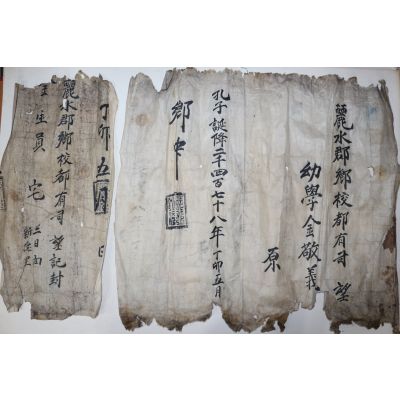 麗水郡鄕校都有司 望
幼學金敬義
原
孔子誕降二千四百七十八年丁卯五月 日
鄕中
丁卯五月 日
麗水郡鄕校都有司 望記封
生員 宅